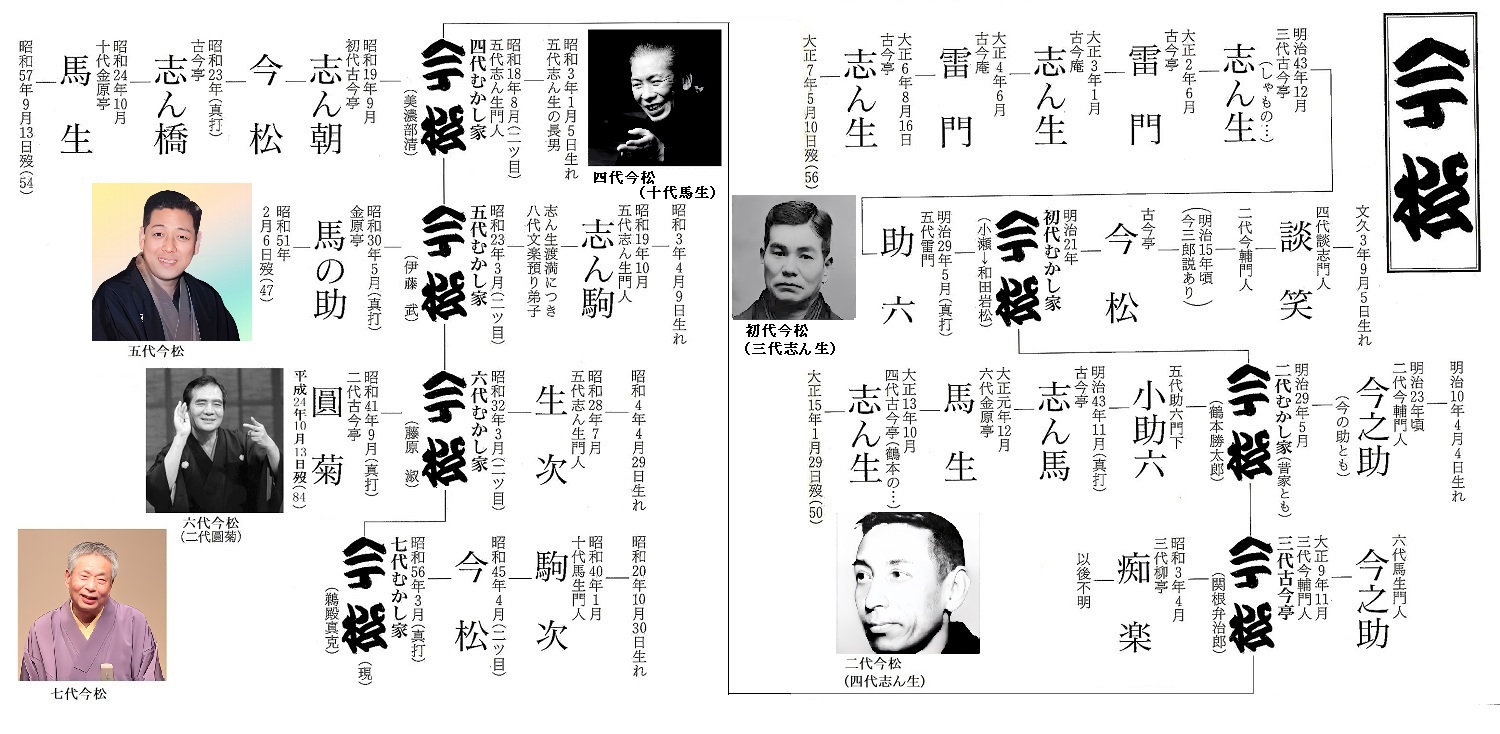 今松
文久3年9月5日生れ
四代談志門人
談笑
二代今輔門人
(明治15年頃
(今三郎説あり)
古今亭
今松
明治21年
初代むかし家
今松
(小瀬→和田岩松)
明治29年5月(真打)
五代雷門
助六
明治43年12月
三代古今亭
(しゃもの…)
志ん生
大正2年6月
古今亭
雷門
大正3年1月
古今庵
志ん生
大正4年6月
古今庵
雷門
大正6年8月16日
古今亭
志ん生
大正7年5月10日歿(56)
初代今松
(三代志ん生)
明治10年4月4日生れ
明治23年頃
二代今輔門人
今之助
(今の助とも)
明治29年5月
二代むかし家(昔家とも)
今松
(鶴本勝太郎)
五代助六門下
小助六
明治43年11月(真打)
古今亭
志ん馬
大正元年12月
六代金原亭
馬生
大正13年10月
四代古今亭(鶴本の…)
志ん生
大正15年1月29日歿(50)
二代今松
(四代志ん生)
六代馬生門人
今之助
大正9年11月
三代今輔門人
三代古今亭
今松
(関根弁治郎)
昭和3年4月
三代柳亭
痴楽
以後不明
四代今松
(十代馬生)
昭和3年1月5日生れ
五代志ん生の長男
昭和18年8月(二ツ目)
五代志ん生門人
四代むかし家
今松
(美濃部清)
昭和19年9月
初代古今亭
志ん朝
今松
昭和23年(真打)
古今亭
志ん橋
昭和24年10月
十代金原亭
馬生
昭和57年9月13日歿(54)
昭和3年4月9日生れ
昭和19年10月
五代志ん生門人
志ん駒
志ん生渡満につき
八代文楽預り弟子
昭和23年3月(二ツ目)
五代むかし家
今松
(伊藤 武)
昭和30年5月(真打)
金原亭
馬の助
昭和51年
2月6日歿(47)
五代今松
昭和4年4月29日生れ
昭和28年7月
五代志ん生門人
生次
昭和32年3月(二ツ目)
六代むかし家
今松
(藤原 淑)
昭和41年9月(真打)
二代古今亭
圓菊
平成24年10月13日歿(84)
六代今松
(二代圓菊)
昭和20年10月30日生れ
昭和40年1月
十代馬生門人
駒次
昭和45年4月(二ツ目)
今松
昭和56年3月(真打)
七代むかし家
今松
(鵜殿真克)
(現)
七代今松